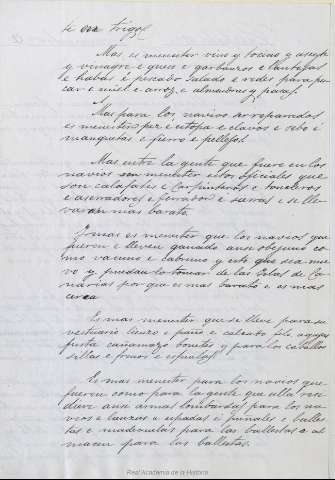 te ora trigos
Mas es menester vino y tocino y aseyte
y vinagre e queso e garbanzos e lantejas
e habas e pescado salado e redes para pes
car e miel e arroz e almendras y pasas
Mas para los navios arreparallos
es menester pez e estopa e clavos e sebo e
manguetas e fierro e pellejos
Mas entre la gente que fuere en los
navios son menester estos oficiales que
son calafates e carpinteros e toneleros
e aserradores e e sierras e se lle
varan mas barato
Y mas es menester que los navios que
fueren e lleven ganado ansi obejuno co
mo vacuno e cabruno y esto que sea nue
vo y puedanlo tomar de las Islas de Ca
narias por que es mas barato e es mas
cerca
Es mas menester que se lleve para su
vestuario lienzo e paño e calzado hilo agujas
fusta cañamazo bonetes y para los caballos
sillas e frenos e espuelas
Es mas menester para los navios que
fueren como para la gente que alla resi
diere ansi armas lombardas para los na
vios e lanzas e espadas e puñales e balles
tas e madexuelas para las ballestas e al
macen para las ballestas.
Real Academia de la Historia